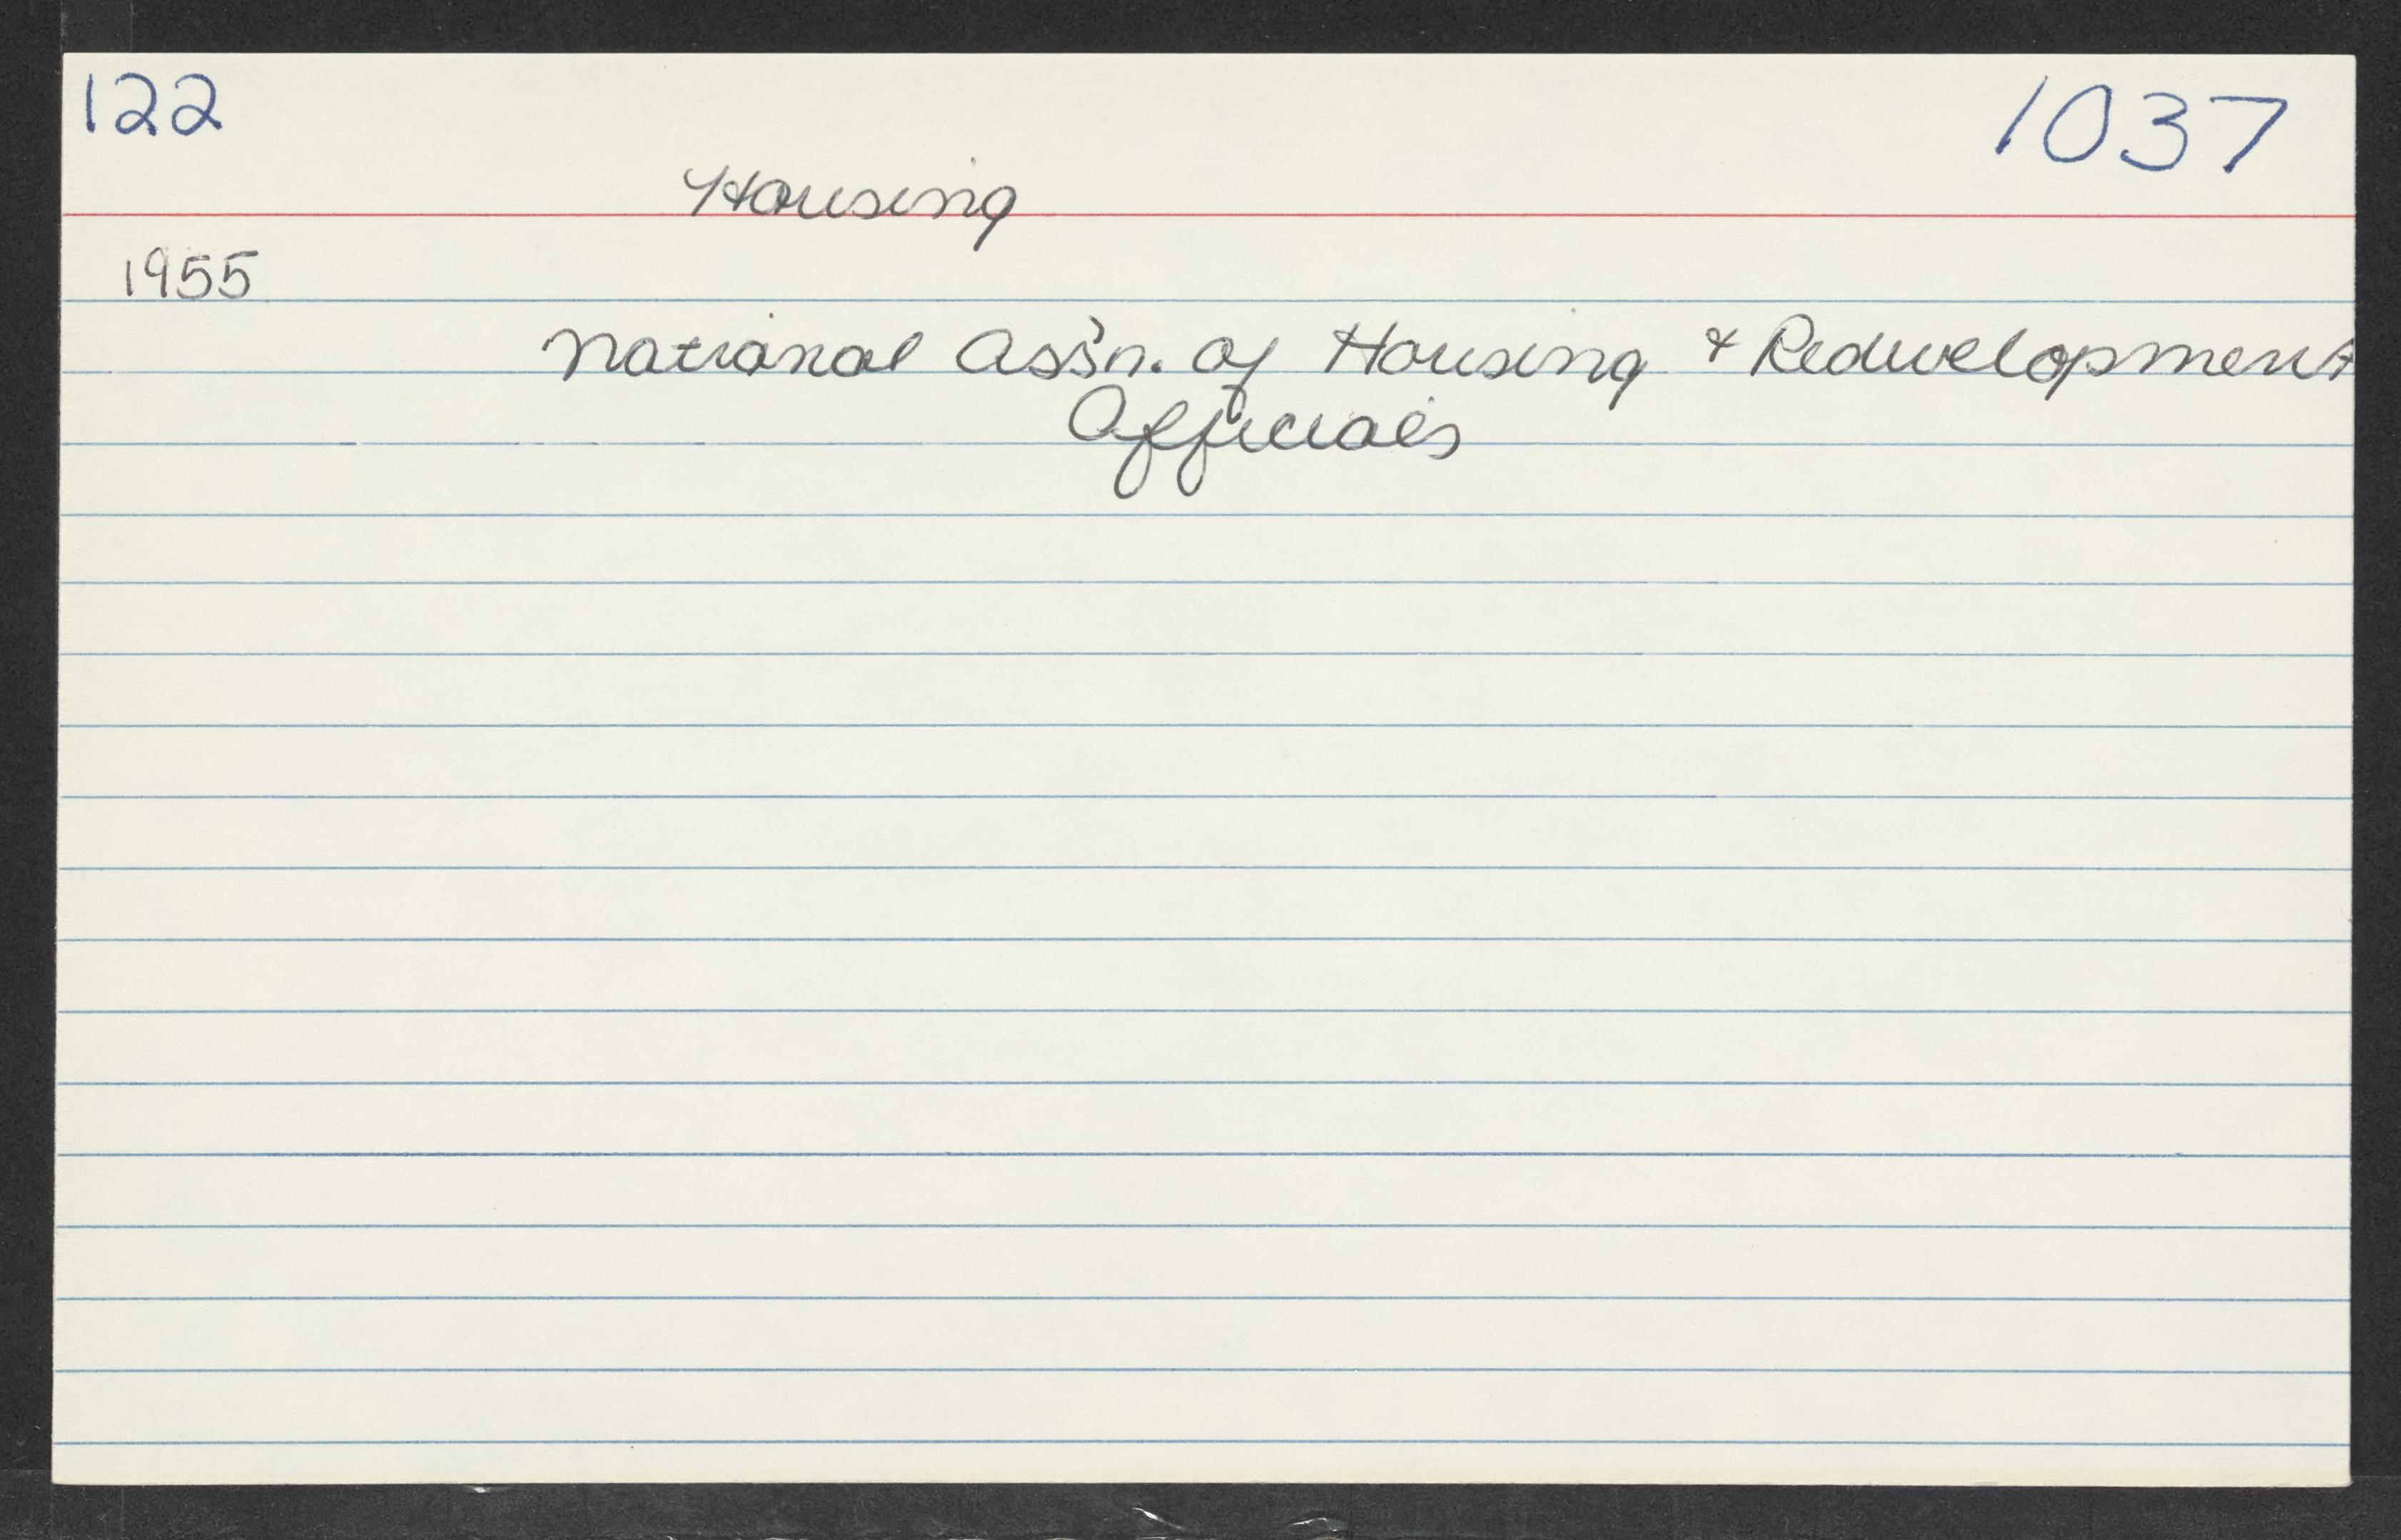 122
1037
Housing
1955
National Ass'n. of Housing & Redevelopment
Officials